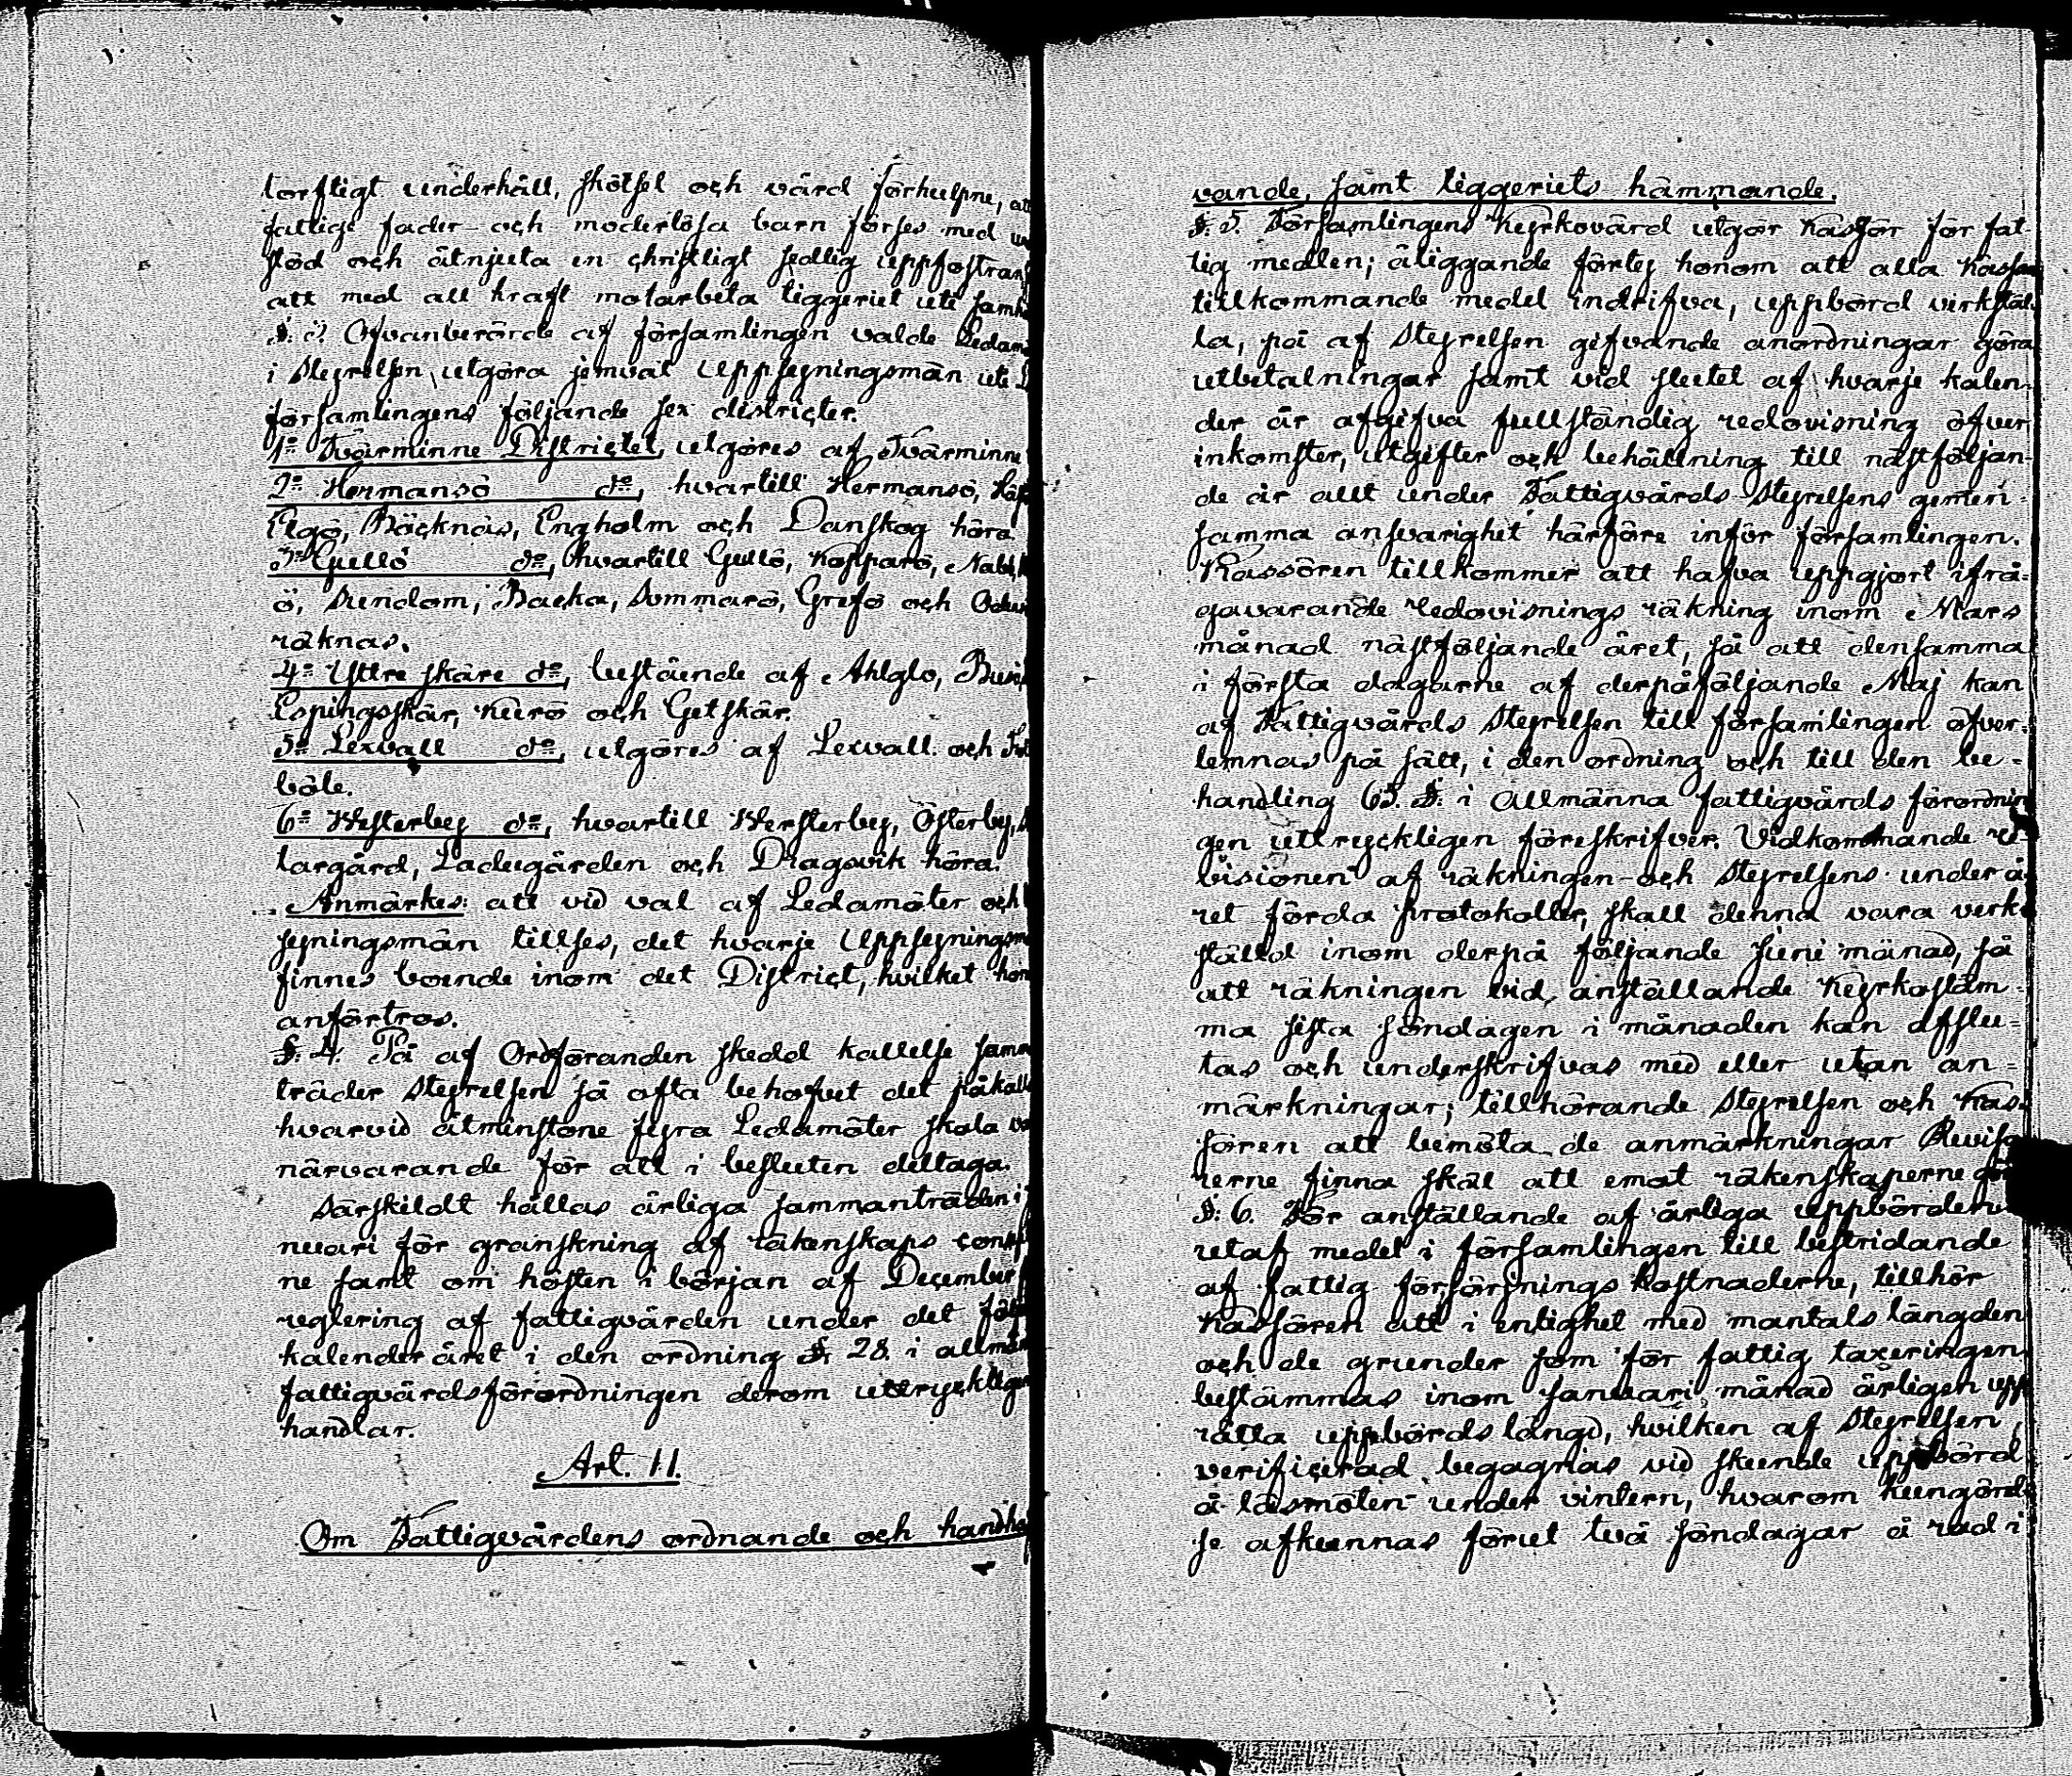 torftigt underhåll, skötsel och vård förhulpne, att
fattige fader- och moderlösa barn förses med un
stöd och åtnjuta en christligt sedlig uppfostran,
att med all kraft motarbeta tiggeriet uti samh
§. 3. Ofvanberörde af församlingen valde Ledam
i Styrelsen, utgöra jemväl Uppsyningsmän uti
församlingens följande sex districter.
1o Tvärminne Districtet, utgöres af Tvärminne
2o Hermansö do, hvartill Hermansö,
Elgö, Bäcknäs, Engholm och Danskog höra.
3o Gullö do, hvartill Gullö, Kopparö,
ö, Sundom, Backa, Sommarö, Grefö och
räknas.
4o Yttre skäre do, bestående af Ahlglo,
Espingsskär, Kurö och Getskär.
5o Lexvall do, utgöres af Lexvall och
böle.
6o Westerby do, hvartill Wersterby, Österby,
largård, Ladugården och Dragsvik höra.
Anmärkes: att vid val af Ledamöter och
syningsmän tillses, det hvarje Uppsyningsm
finnes boende inom det District, hvilket hon
anförtros.
§. 4. På af Ordföranden skedd kallelse samm
träder Styrelsen så ofta behofvet det påkall
hvarvid åtminstone fyra Ledamöter skola va
närvarande för att i besluten deltaga.
Särskildt hållas årliga sammanträden i
nuari för granskning af räkenskaps
ne samt om hösten i början af December
reglering af fattigvården under det följ
kalenderåret i den ordning §. 28. i allmän
fattigvårdsförordningen derom uttryckligen
handlar.
Art. 11.
Om Fattigvårdens ordnande och handha
vande, samt tiggeriets hämmande.
§. 5. Församlingens Kyrkovärd utgör Kassör för fat-
tig medlen; åliggande förty honom att alla Kassan
tillkommande medel indrifva, uppbörd verkstäl-
la, på af Styrelsen gifvande anordningar göra
utbetalningar samt vid slutet af hvarje kalen-
der år afgifva fullständig redovisning öfver
inkomster, utgifter och behållning till nästföljan-
de år allt under Fattigvårds Styrelsens gemen-
samma ansvarighet härföre inför församlingen.
Kassören tillkommer att hafva uppgjort ifrå-
gavarande redovisnings räkning inom Mars
månad nästföljande året, så att densamma
i första dagarne af derpåföljande Maj kan
af Fattigvårds Styrelsen till församlingen öfver-
lemnas på sätt, i den ordning och till den be-
handling 63. §. i Allmänna fattigvårds förordnin
gen uttryckligen föreskrifver. Vidkommande re-
visionen af räkningen och Styrelsens under å
ret förda protokoller, skall denna vara verk-
ställd inom derpå följande Juni månad, så
att räkningen vid anställande Kyrkostäm-
ma sista söndagen i månaden kan afslu-
tas och underskrifvas med eller utan an-
märkningar; tillhörande Styrelsen och Kas-
sören att bemöta de anmärkningar Reviso
rerne finna skäl att emot räkenskaperne gör
§. 6. För anställande af årliga uppbörden
utaf medel i församlingen till bestridande
af fattig försörjnings kostnaderne, tillhör
Kassören att i enlighet med mantals längden
och de grunder som för fattig taxeringen
bestämmas inom Januari månad årligen upp
rätta uppbörds längd, hvilken af Styrelsen
verificerad begagnas vid skeende uppbörd
å läsmöten under vintern, hvarom kungörel
se afkunnas förut två söndagar å rad i